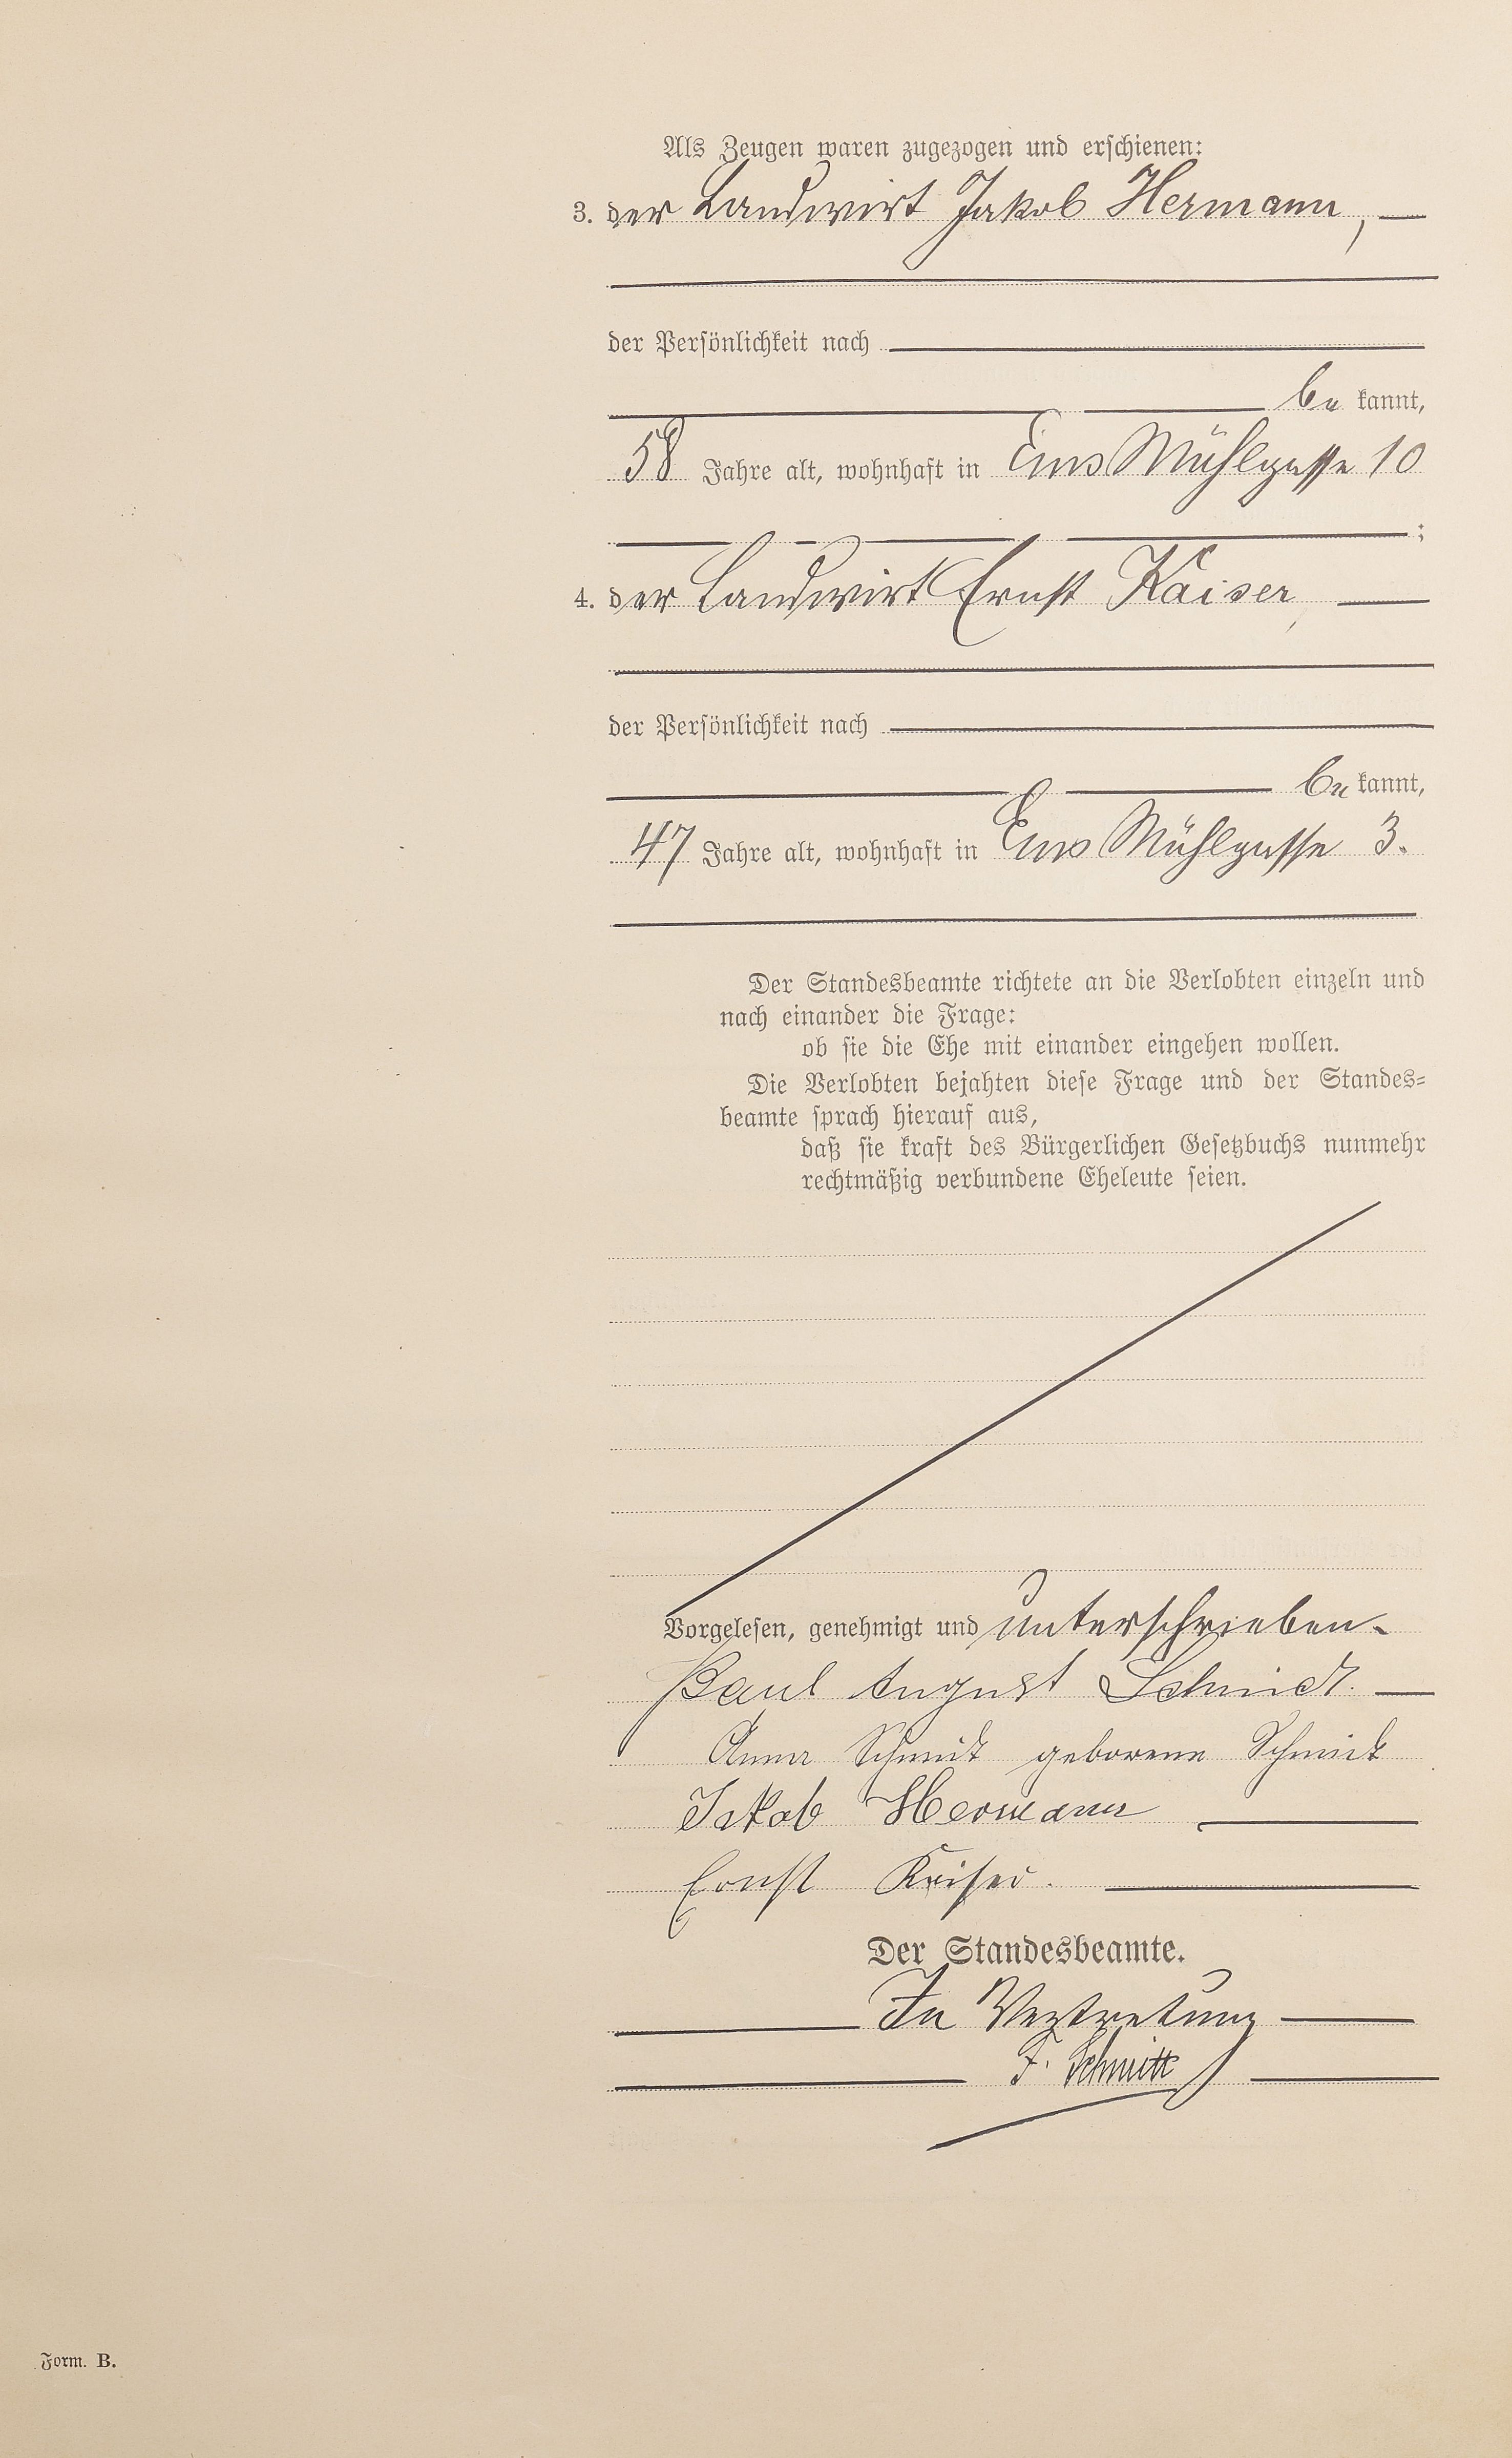 Als Zeugen waren zugezogen und erschienen:
3. der Landwirt Jakob Hermann,
der Persönlichkeit nach
be kannt,
58 Jahre alt, wohnhaft in Ems Mühlgasse 10
;
4. der Landwirt Ernst Kaiser,
der Persönlichkeit nach
be kannt,
47 Jahre alt, wohnhaft in Ems Mühlgasse 3.
Der Standesbeamte richtete an die Verlobten einzeln und
nach einander die Frage:
ob sie die Ehe mit einander eingehen wollen.
Die Verlobten bejahten diese Frage und der Standes-
beamte sprach hierauf aus,
daß sie kraft des Bürgerlichen Gesetzbuchs nunmehr
rechtmäßig verbundene Eheleute seien.
Vorgelesen, genehmigt und unterschrieben.
Paul August Schmidt.
Anna Schmidt geborene Schmidt
Jakob Hermann
Ernst Kaiser.
Der Standesbeamte.
In Vertretung
F. Schmitt
Form. B.